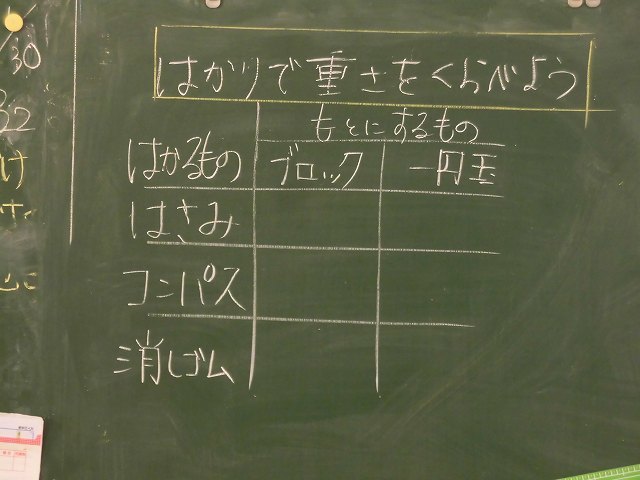 はかりで重さをくらべよう
もとにするもの
はかるもの ブロック 一円玉
はさみ
コンパス
消しゴム
30
22
け